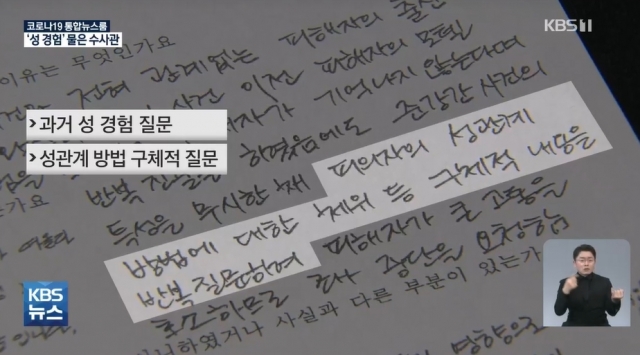 코로나19 통합뉴스룸
'성 경험' 물은 수사관
KBS1
이유는 무엇인가요
전혀 관계없는 피해자의 출산
사건 이전 피해자의 모텔
기억나지 않는다며
> 과거 성 경험 질문
> 성관계 방법 구체적 질문
반복 하였음에도 준강간 사건의
특성을 무시한 채 피의자의 성관계
방법에 대한 체위 등 구체적 내용을
반복 질문하여 피해자가 큰 고통을
호소하므로 조사 중단을 요청함
하였거나 사실과 다른 부분이 있는가
KBS
뉴스